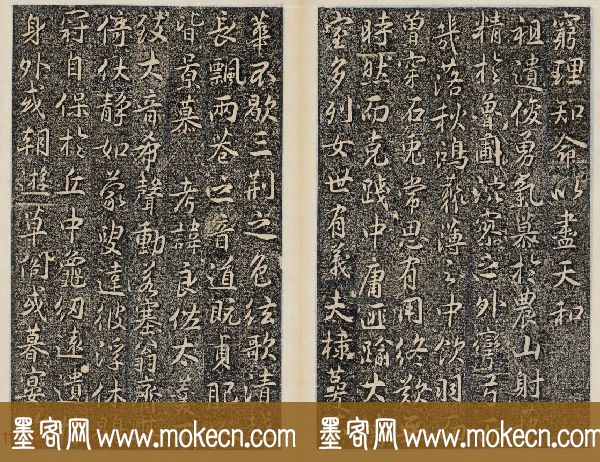 窮理知命以盡天和
祖遺俊勇氣慕於農山射
精於魯圃之外彎弓
落秋鴻叢薄之中飲羽
曾穿石兔常思有用終歎
時默而克踐中庸匪踰大
室多列女世有義夫棣萼
華不歇三荊之色絃歌清越
長飄兩巷之音道既貞肥
皆景慕 考諱良佐太
大音希聲動若塞翁齊
倚伏靜如蒙叟達彼浮休
冠自保於丘中龜紉遠遺
身外或朝遊草閣或暮宴
墨客网 www.mokecn.com 墨客网 www.mokecn.com